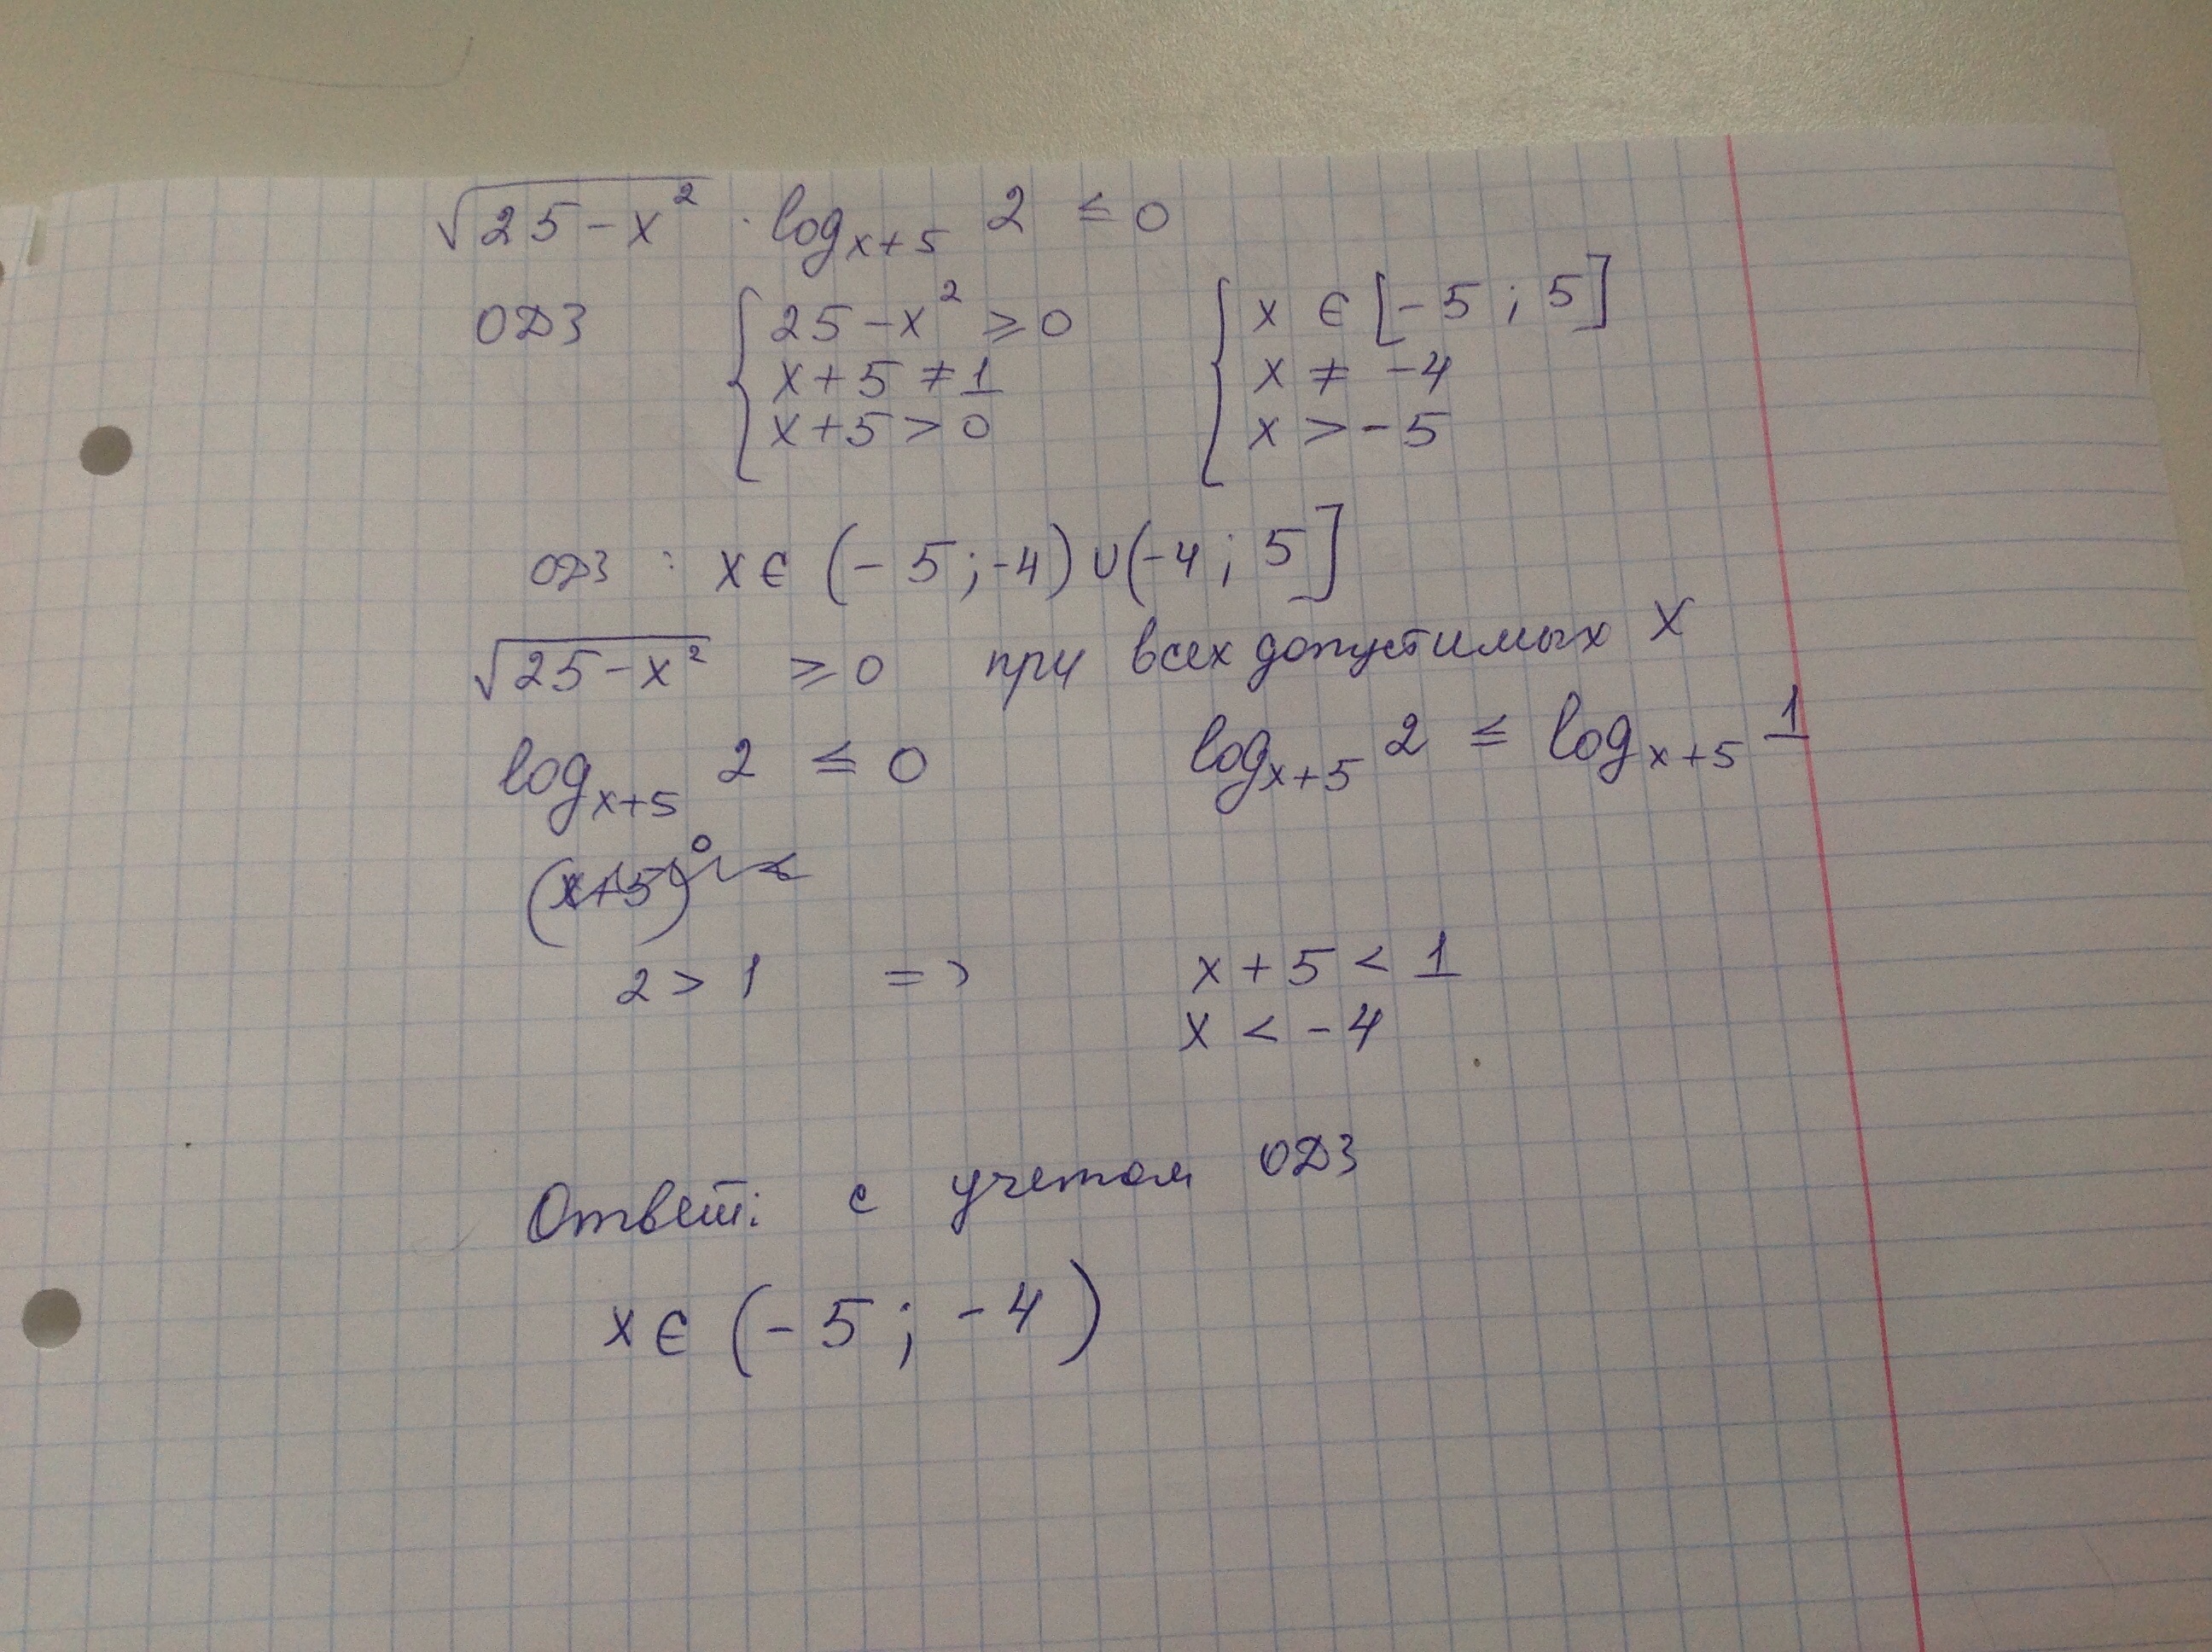 √25-x² · log_{x+5} 2 ≤ 0
ОДЗ { 25-x² ≥ 0 { x ∈ [-5 ; 5]
x+5 ≠ 1 x ≠ -4
x+5 > 0 x > -5
ОДЗ : x ∈ (-5 ; -4) ∪ (-4 ; 5]
√25-x² ≥ 0 при всех допустимых x
log_{x+5} 2 ≤ 0 log_{x+5} 2 ≤ log_{x+5} 1
(x+5)⁰
2 > 1 => x+5 < 1
x < -4
Ответ: с учетом ОДЗ
x ∈ (-5 ; -4)